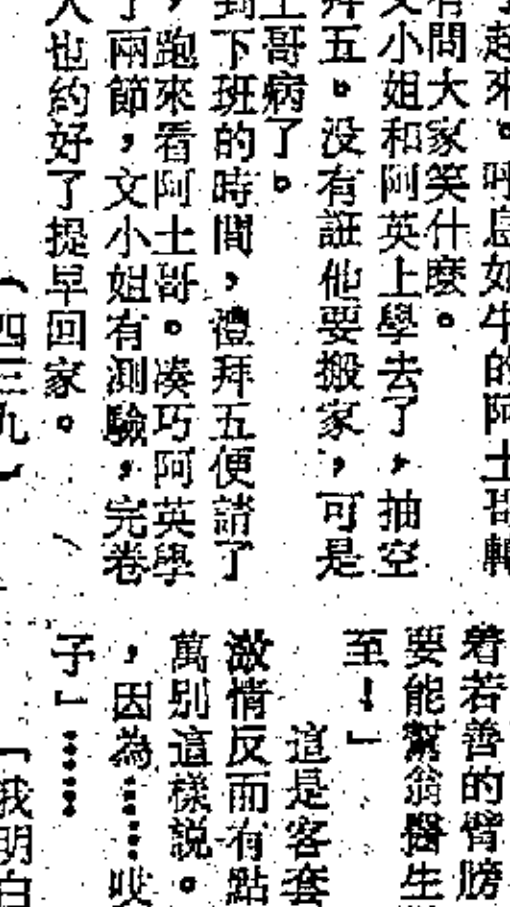 起來。呼息如牛的阿土哥轉
有問大家笑什麽。
文小姐和阿英上學去了，抽空
拜五。没有誑他要搬家，可是
土哥病了。
到下班的時間，禮拜五便請了
，跑來看阿土哥。凑巧阿英學
了兩節，文小姐有測驗，完卷
人也約好了提早回家。
（四三九）
着若善的臂膀
要能幫翁醫生
至！」
這是客套
激情反而有點
萬别這樣説。
，因為……哎
子」……
「我明白